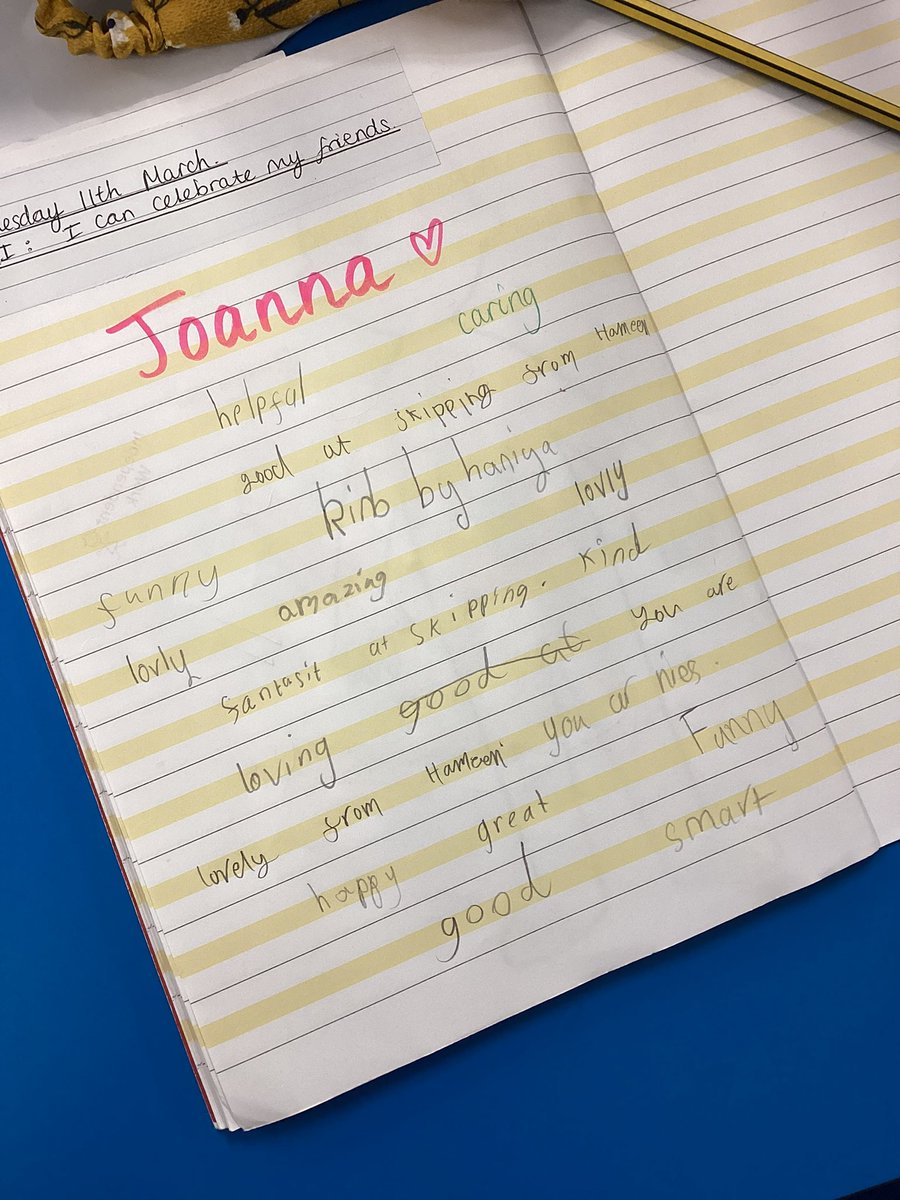 esday 11th March.
I: I can celebrate my friends.
Joanna
caring
helpful
good at skipping from Hameen
kinb by haniya
lovly
funny amazing
lovly santasit at skipping. kind
loving good at you are
lovely from Hameen you ar nies.
Funny
happy great
good smart